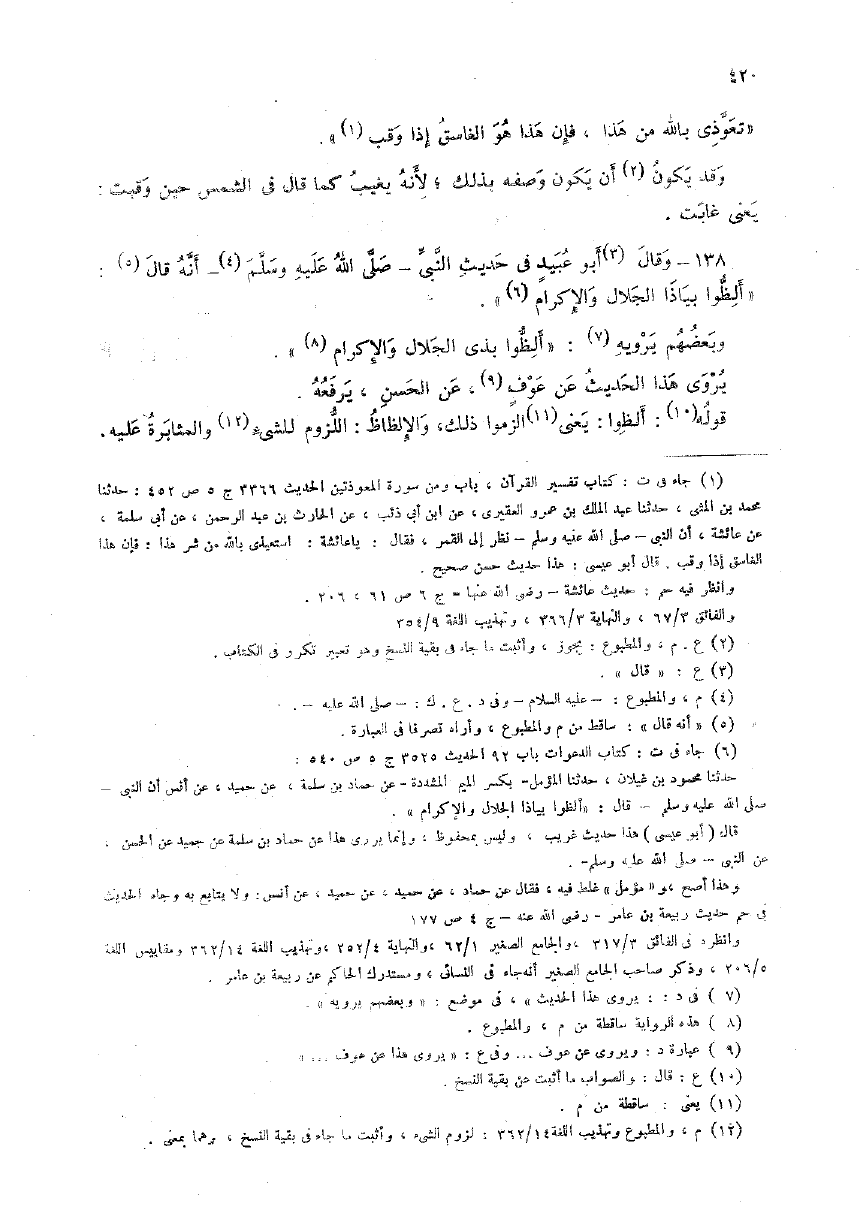 ٤٢٠
«تعَوَّذِى بالله من هَذا ، فإن هَذا هُوَ الغاسقُ إذا وَقب (١) » .
وَقد يَكونُ (٢) أن يَكون وَصفه بذلك ؛ لِأنهُ يغيبُ كما قال فى الشمس حين وَقبت :
يَعنى غابَت .
١٣٨ – وَقالَ (٣) أبو عُبَيدٍ فى حَديثِ النَّبىِّ – صَلَّى اللهُ عَلَيهِ وسَلَّمَ (٤) – أنَّهُ قالَ (٥) :
« ألِظُّوا بيَاذَا الجَلال وَالإكرام (٦) » .
وبَعضُهُم يَرْويهِ (٧) : « ألِظُّوا بذى الجَلال وَالإكرام (٨) » .
يُرْوَى هَذا الحَديثُ عَن عَوْفٍ (٩) ، عَن الحَسنِ ، يَرفَعُهُ .
قولُه (١٠) : ألظوا : يَعنى (١١) الزموا ذلك، وَالإلظاظُ : اللُّزوم للشىء (١٢) والمثابَرةُ عَليه .
(١) جاء فى ت : كتاب تفسير القرآن ، باب ومن سورة المعوذتين الحديث ٣٣٦٦ ج ٥ ص ٤٥٢ : حدثنا
محمد بن المثنى ، حدثنا عبد الملك بن عمرو العقيرى ، عن ابن أبى ذئب ، عن الحارث بن عبد الرحمن ، عن أبى سلمة ،
عن عائشة ، أن النبى – صلى الله عليه وسلم – نظر إلى القمر ، فقال : ياعائشة : استعيذى بالله من شر هذا : فإن هذا
الغاسق إذا وقب . قال أبو عيسى : هذا حديث حسن صحيح .
وانظر فيه حم : حديث عائشة – رضى الله عنها – ج ٦ ص ٦١ ، ٢٠٦ .
والفائق ٦٧/٣ ، والنهاية ٣٦٦/٣ ، وتهذيب اللغة ٣٥٤/٩
(٢) ع . م ، والمطبوع : يجوز ، وأثبت ما جاء فى بقية النسخ وهو تعبير تكرر فى الكتاب .
(٣) ع : « قال » .
(٤) م ، والمطبوع : – عليه السلام – وفى د . ع . ك : – صلى الله عليه – .
(٥) « أنه قال » : ساقط من م والمطبوع ، وأراه تصرفا فى العبارة .
(٦) جاء فى ت : كتاب الدعوات باب ٩٢ الحديث ٣٥٢٥ ج ٥ ص ٥٤٠ :
حدثنا محمود بن غيلان ، حدثنا المؤمل- بكسر الميم المشددة - عن حماد بن سلمة ، عن حميد ، عن أنس أن النبى –
صلى الله عليه وسلم – قال : «ألظوا بياذا الجلال والإكرام » .
قال ( أبو عيسى ) هذا حديث غريب ، وليس بمحفوظ ، وإنما يروى هذا عن حماد بن سلمة عن حميد عن الحسن ،
عن النبى – صلى الله عليه وسلم- .
وهذا أصح ،و « مؤمل » غلط فيه ، فقال عن حماد ، عن حميد ، عن حميد ، عن أنس : ولا يتابع به وجاء الحديث
فى حم حديث ربيعة بن عامر - رضى الله عنه – ج ٤ ص ١٧٧
وانظره فى الفائق ٣١٧/٣ ،والجامع الصغير ٦٢/١ ،والنهاية ٢٥٢/٤ ،وتهذيب اللغة ٣٦٢/١٤ ومقاييس اللغة
٢٠٦/٥ ، وذكر صاحب الجامع الصغير أنه جاء فى النسائى ، ومستدرك الحاكم عن ربيعة بن عامر .
(٧ ) فى د : : يروى هذا الحديث » ، فى موضع : « وبعضهم يرويه » .
(٨ ) هذه الرواية ساقطة من م ، والمطبوع .
(٩ ) عبارة د : ويروى عن عوف ... وفى ع : « يروى هذا عن عوف ... »
(١٠) ع : قال : والصواب ما أثبت عن بقية النسخ .
(١١) يعنى : ساقطة من م .
(١٢) م ، والمطبوع وتهذيب اللغة ٣٦٢/١٤ : لزوم الشىء ، وأثبت ما جاء فى بقية النسخ ، وهما بمعنى .